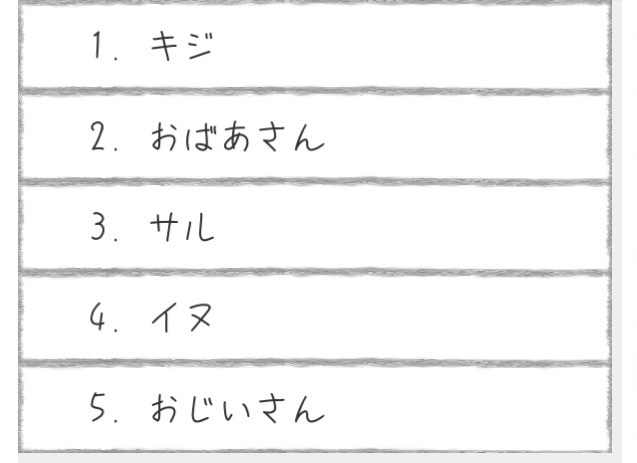 1. キジ
2. おばあさん
3. サル
4. イヌ
5. おじいさん